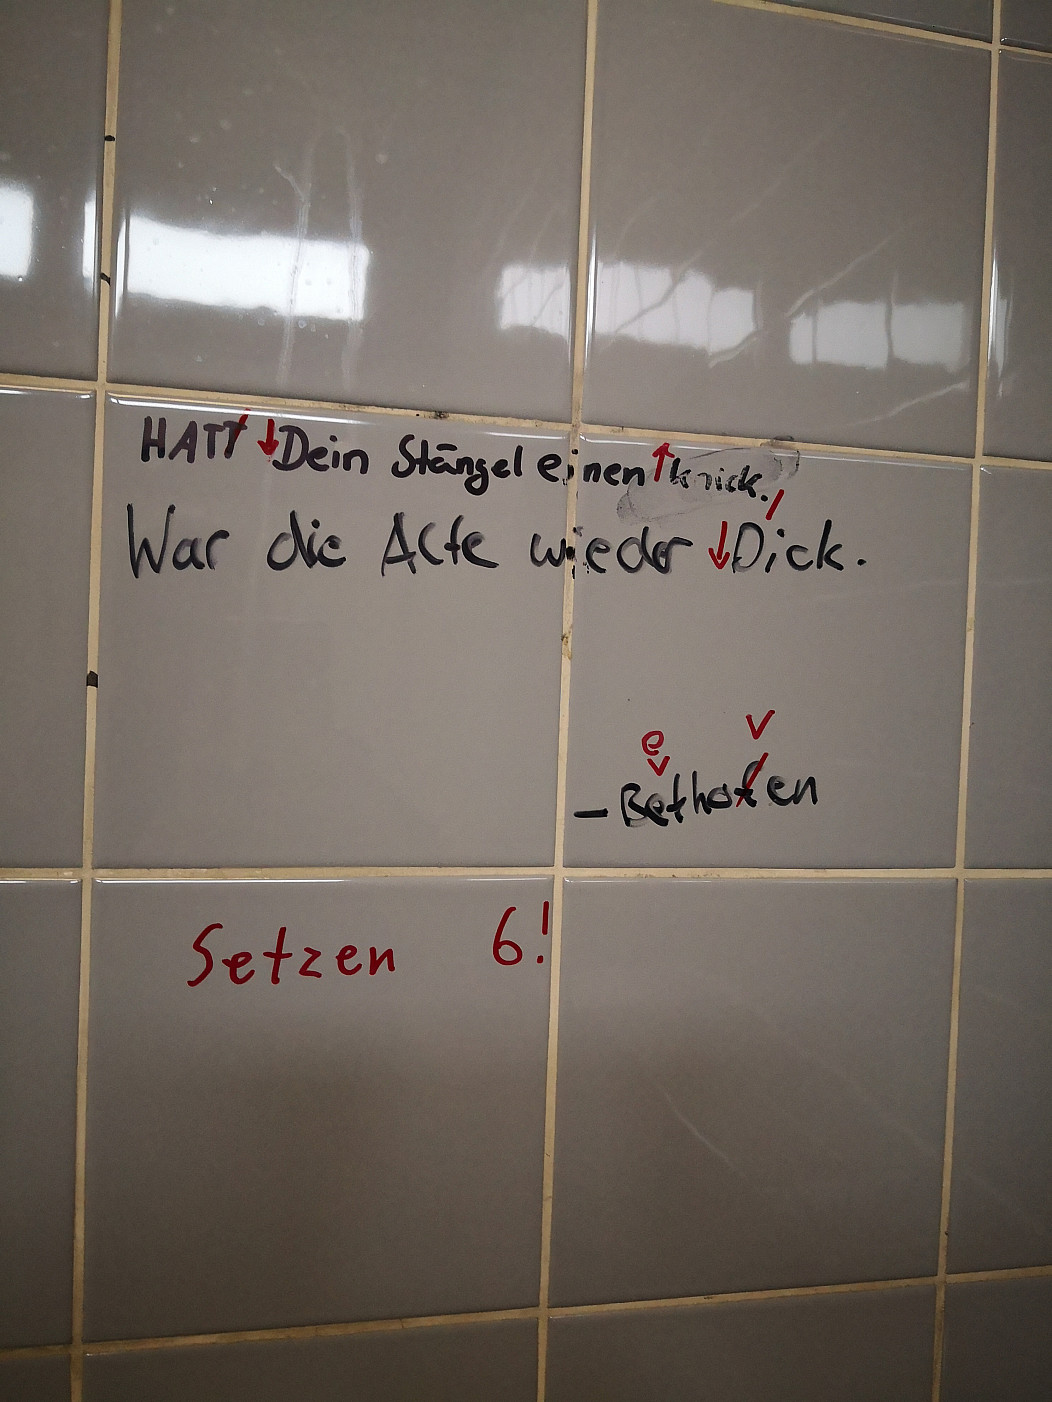 HATT Dein Stängel einen knick.
War die Alte wieder Dick.
e v
- Bethofen
Setzen 6!